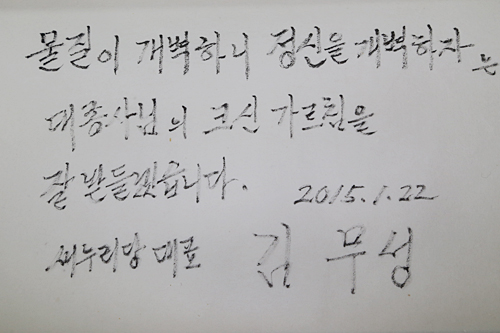 물질이 개벽하니 정신을 개벽하자는
대종사님의 크신 가르침을
잘 받들겠습니다. 2015.1.22
새누리당 대표 김무성